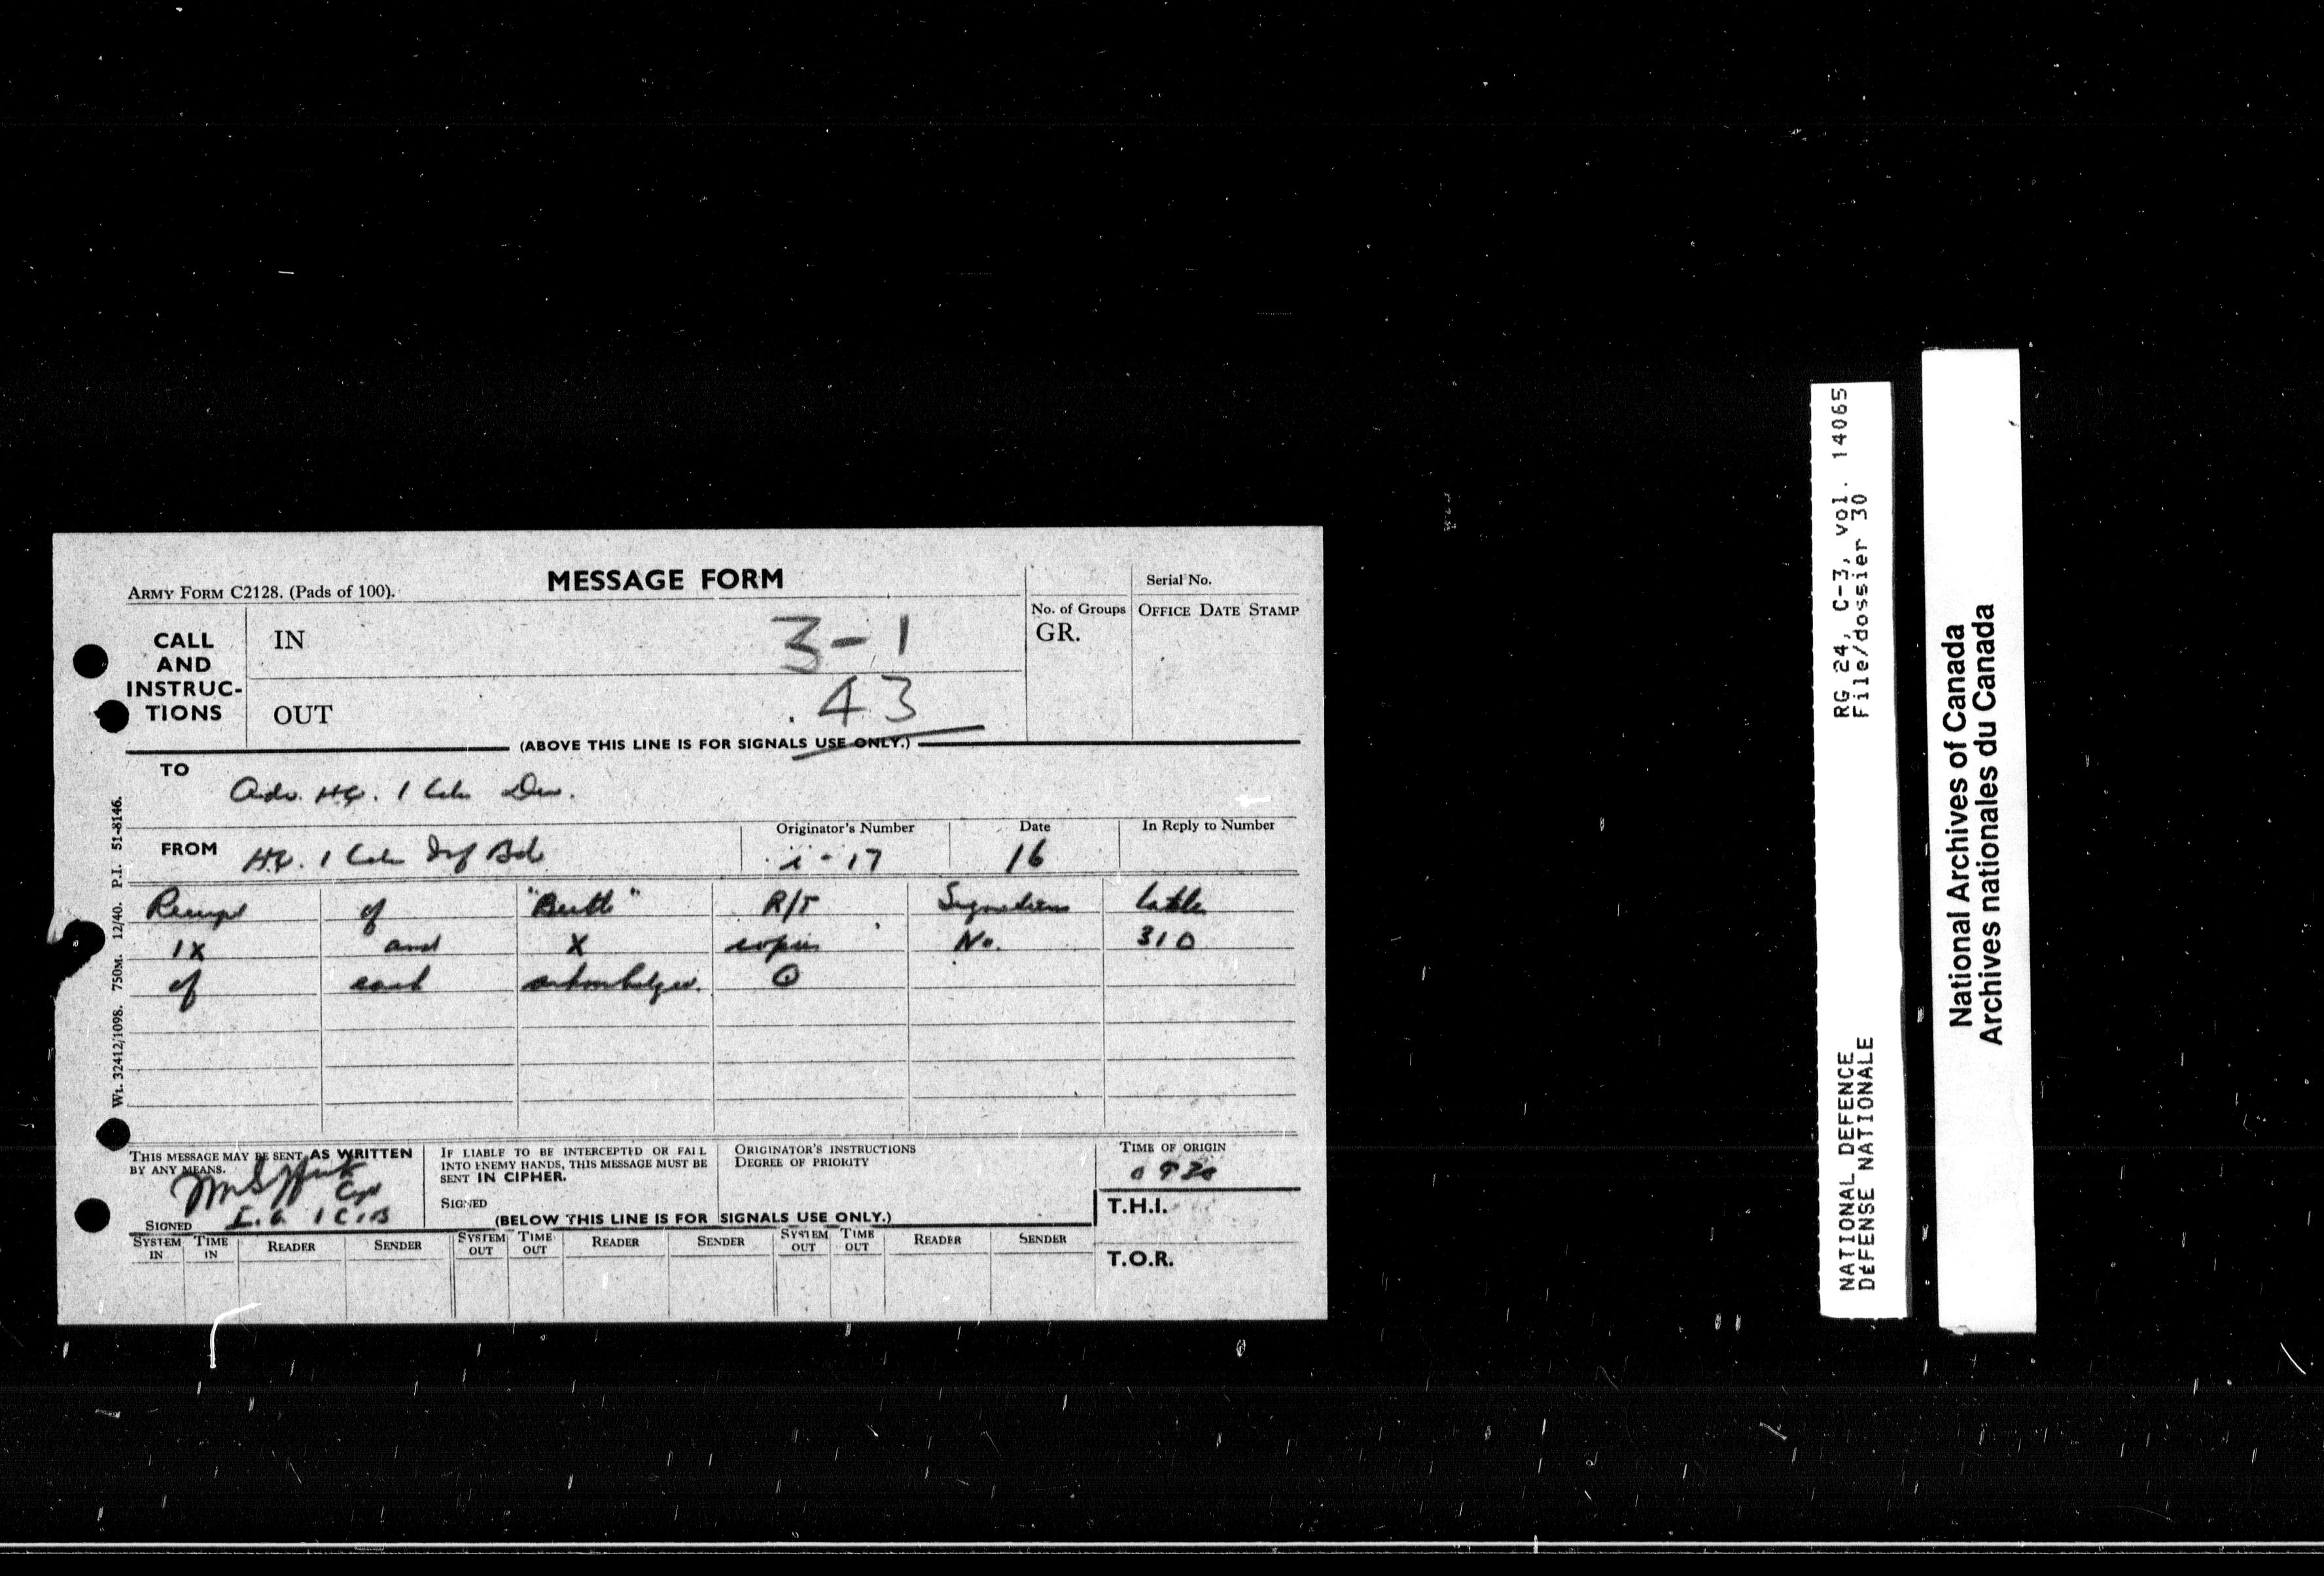 ARMY FORM C2128. (Pads of 100).
MESSAGE FORM
Serial No.
CALL AND INSTRUC-TIONS
IN
3-1
No. of Groups
GR.
OFFICE DATE STAMP
OUT
.43
(ABOVE THIS LINE IS FOR SIGNALS USE ONLY.)
TO
Adv. HQ. 1 Cdn Div.
FROM
HQ. 1 Cdn Inf Bde
Originator's Number
i-17
Date
16
In Reply to Number
of "Butt" R/T
IX and X copies No. 310
of each acknowledged. O
Wt. 32412/1098. 750M. 12/40. P.I. 51-8146.
THIS MESSAGE MAY BE SENT AS WRITTEN
BY ANY MEANS.
Capt
SIGNED
IF LIABLE TO BE INTERCEPTED OR FALL
INTO ENEMY HANDS, THIS MESSAGE MUST BE
SENT IN CIPHER.
SIGNED
ORIGINATOR'S INSTRUCTIONS
DEGREE OF PRIORITY
TIME OF ORIGIN
0930
T.H.I.
(BELOW THIS LINE IS FOR SIGNALS USE ONLY.)
SYSTEM IN TIME IN READER SENDER SYSTEM OUT TIME OUT READER SENDER SYSTEM OUT TIME OUT READER SENDER
T.O.R.
RG 24, C-3, vol. 14065
File/dossier 30
NATIONAL DEFENCE
DÉFENSE NATIONALE
National Archives of Canada
Archives nationales du Canada